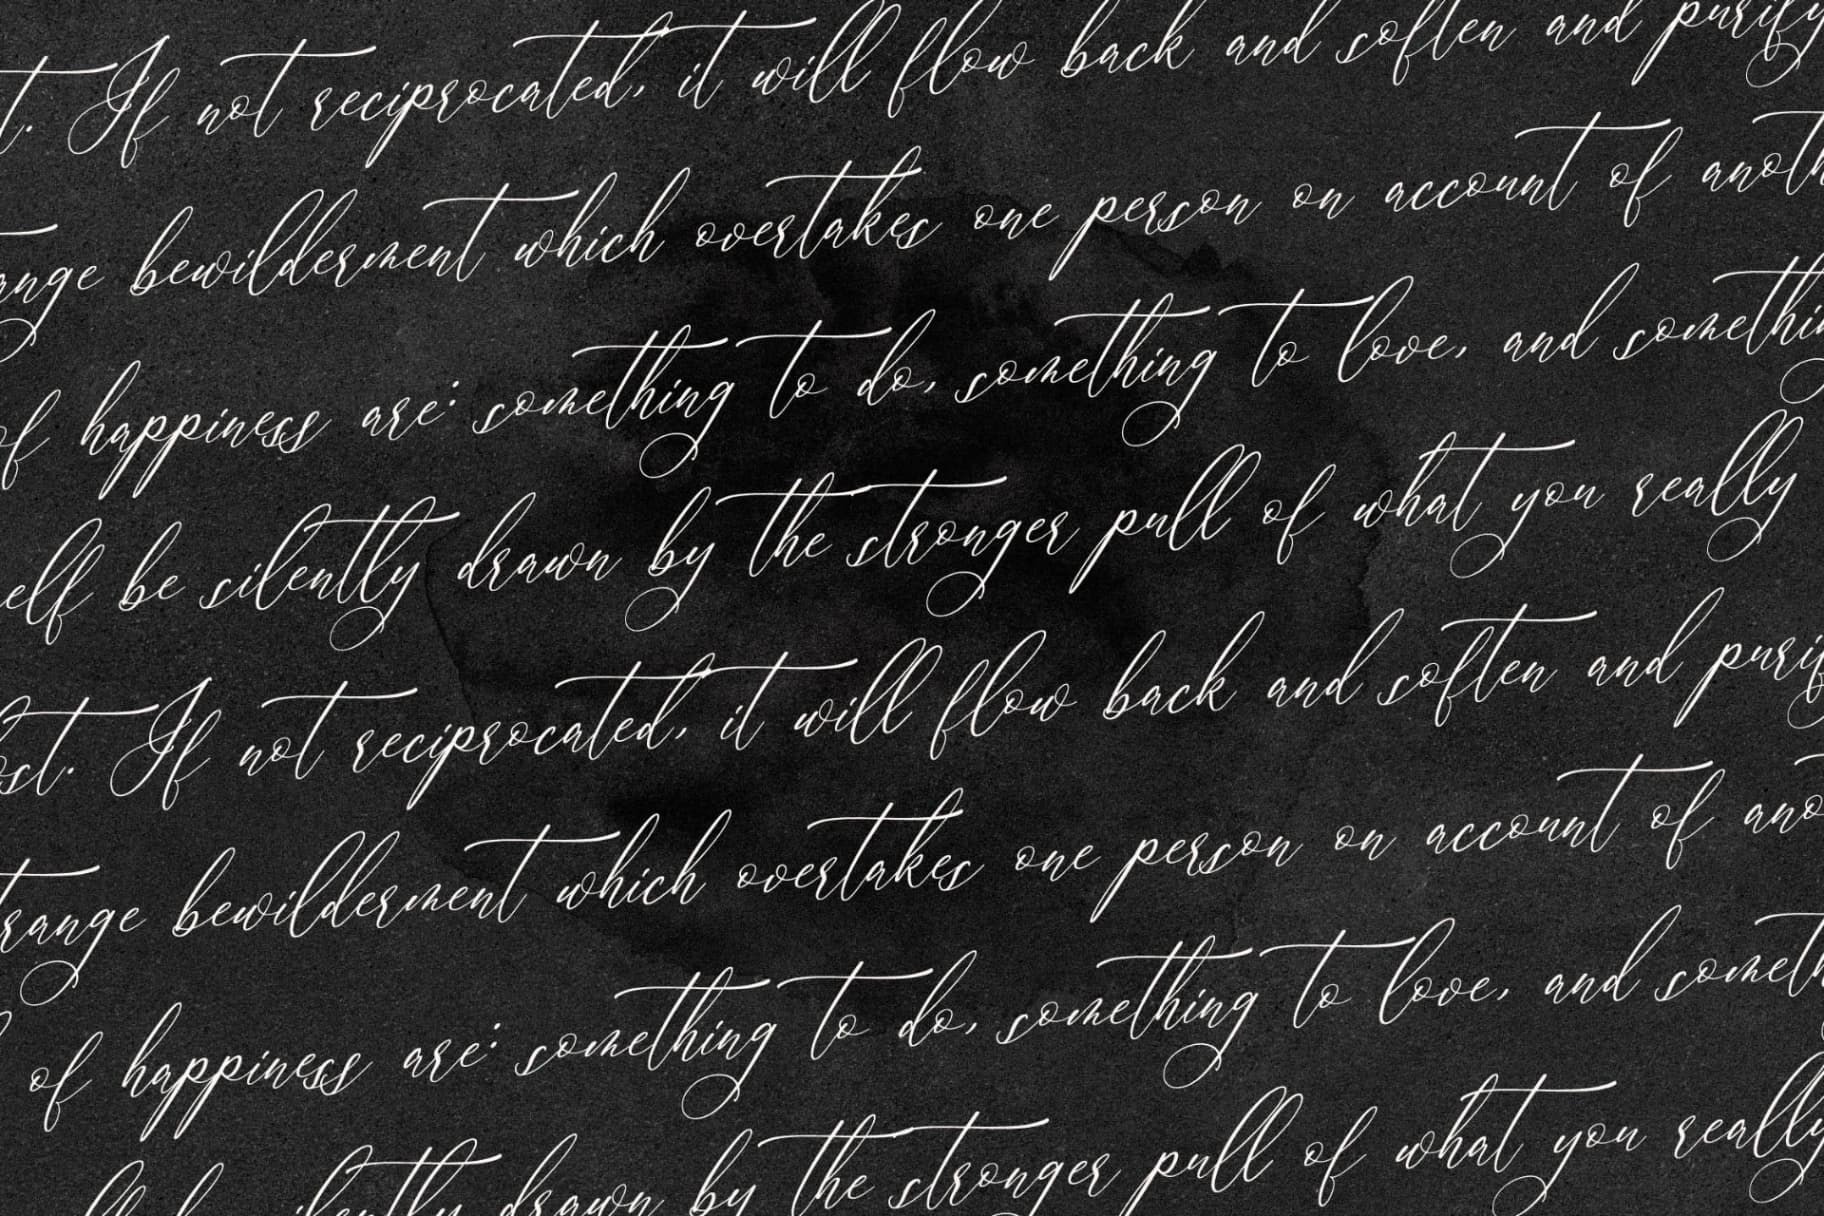 t. If not reciprocated, it will flow back and soften and purify
ange bewilderment which overtakes one person on account of anoth
of happiness are: something to do, something to love, and somethin
elf be silently drawn by the stronger pull of what you really
ost. If not reciprocated, it will flow back and soften and purif
trange bewilderment which overtakes one person on account of ano
of happiness are: something to do, something to love, and someth
silently drawn by the stronger pull of what you really